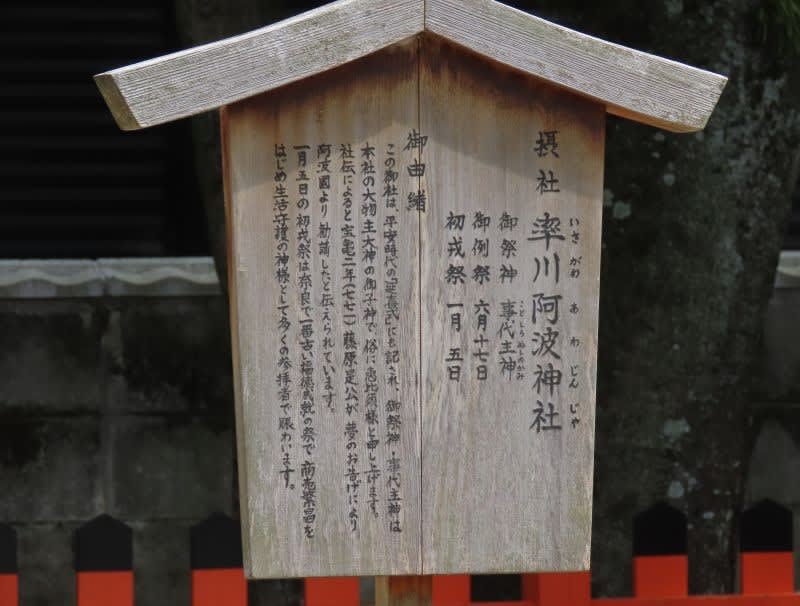 摂社 率川阿波神社
いさがわあわじんじゃ
御祭神 事代主神
ことしろぬしのかみ
御例祭 六月十七日
初戎祭 一月五日
御由緒
この御社は、平安時代の「延喜式」にも記され、御祭神・事代主神は
本社の大物主大神の御子神で、俗に恵比須様と申し上げます。
社伝によると宝亀二年（七七一）藤原是公が夢のお告げにより
阿波國より勧請したと伝えられています。
一月五日の初戎祭は奈良で一番古い福徳成就の祭で商売繁昌を
はじめ生活守護の神様として多くの参拝者で賑わいます。